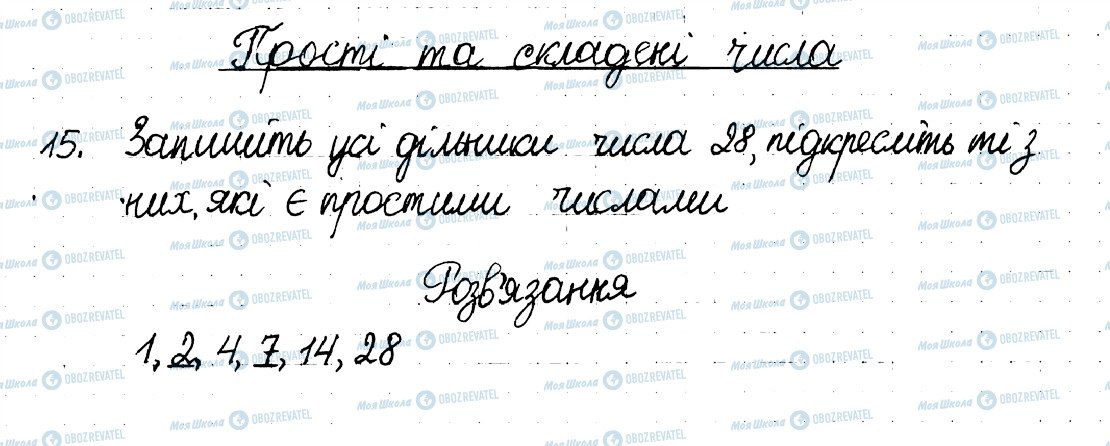 Прості та складені числа
15. Запишіть усі дільники числа 28, підкресліть ті з
них, які є простими числами
Розв'язання
1, 2, 4, 7, 14, 28